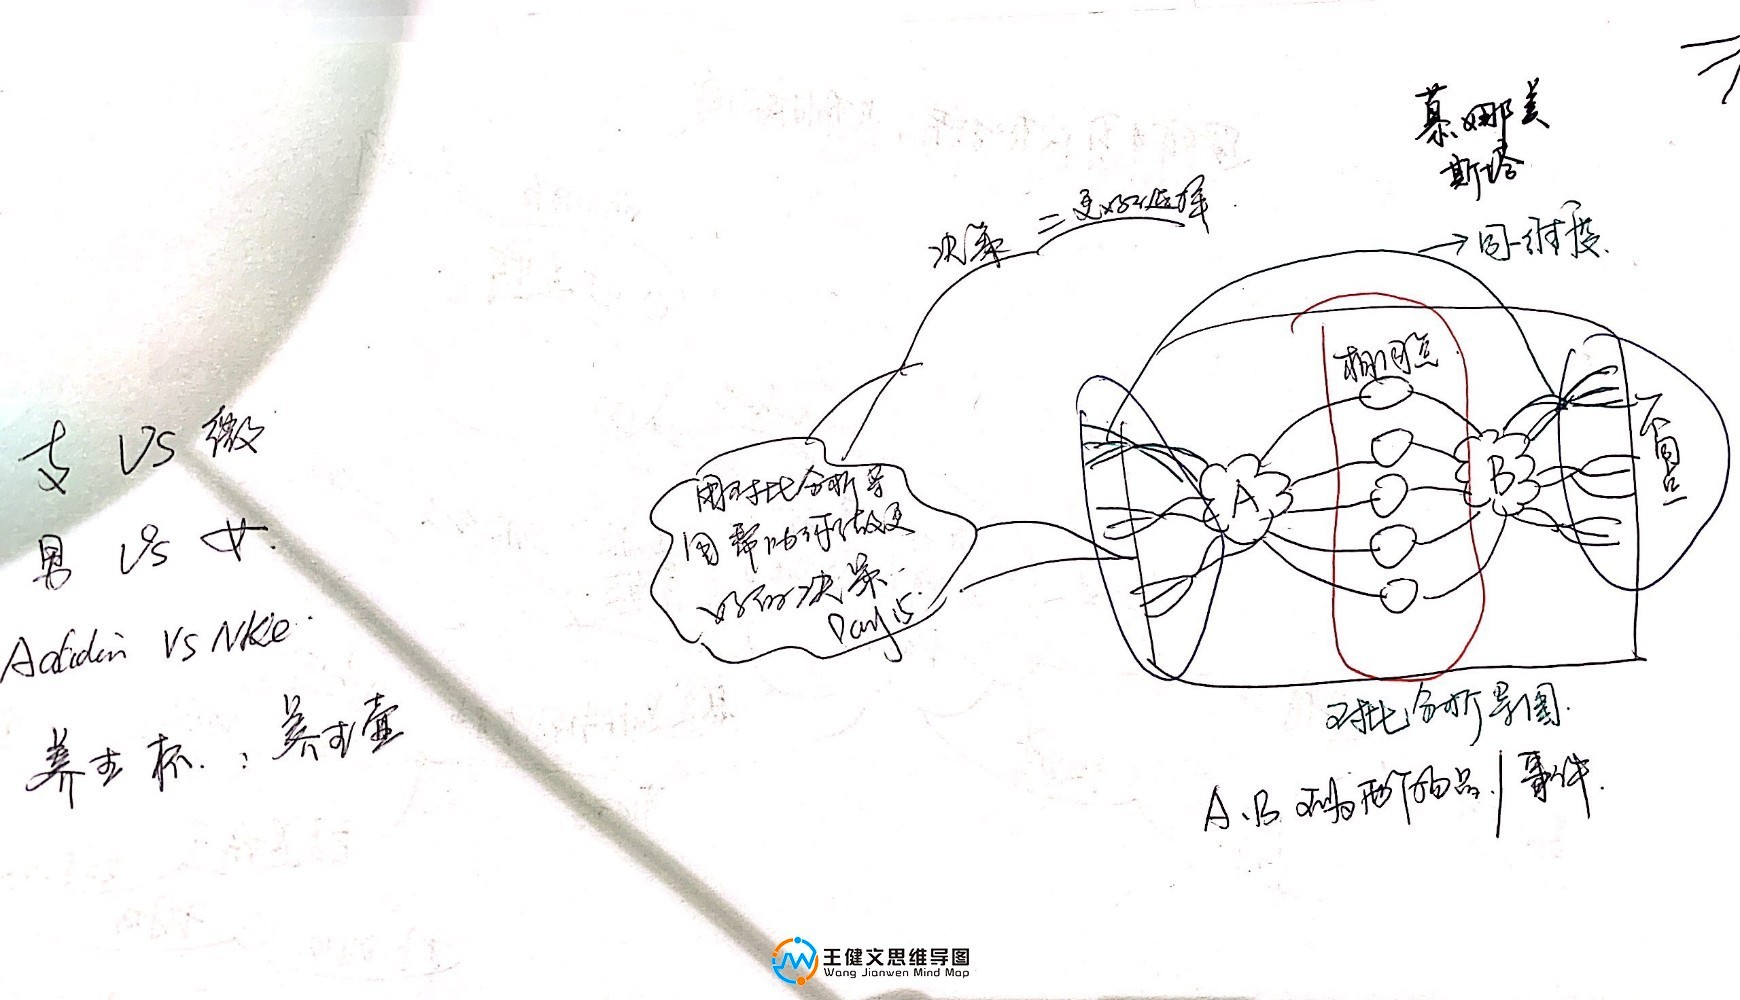 慕娜美
斯塔
决策 = 更好选择.
→同一维度.
相同点
不同点
支 VS 微
男 VS 女.
VS Nike.
养生杯. : 养生壶
用对比分析导
图帮助于做更
好的决策.
Day 15.
A
B
对比分析导图.
A、B 两个物品/事件.
王健文思维导图
Wang Jianwen Mind Map